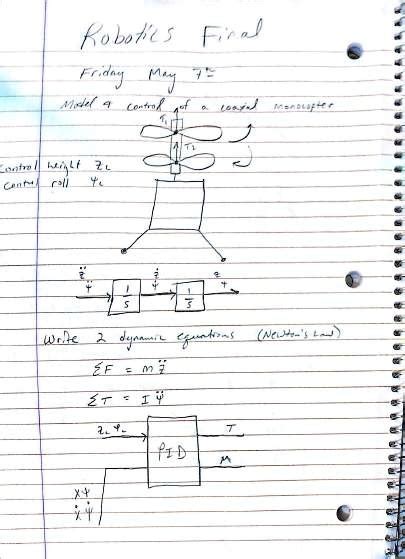 Robotics Final
Friday May 7th
Model & control of a coaxial monocopter
T₁
T₂
Control height Z_L
Control roll Ψ_L
z̈ ż z
ψ̈ ψ̇ ψ
1/S 1/S
Write 2 dynamic equations (Newton's Law)
ΣF = m z̈
ΣT = I ψ̈
Z_L Ψ_L
PID
T
M